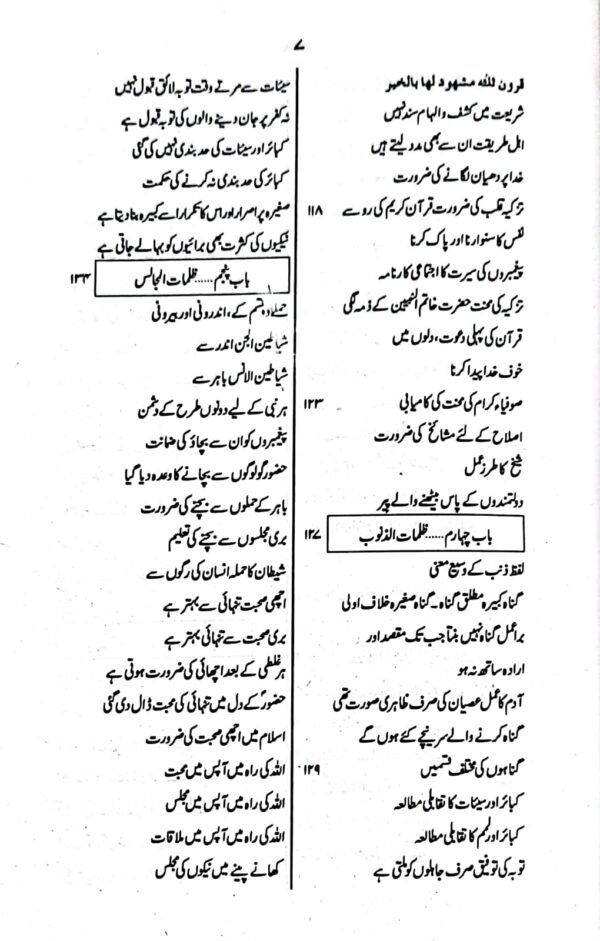 ۷
قرون ثلثہ مشہود لہا بالخیر
شریعت میں کشف و الہام سند نہیں
اہل طریقت ان سے بھی مدد لیتے ہیں
خدا پر دھیان لگانے کی ضرورت
تزکیہ قلب کی ضرورت قرآن کریم کی رو سے ۱۱۸
نفس کا سنوارنا اور پاک کرنا
پیغمبروں کی سیرت کا اجتماعی کارنامہ
تزکیہ کی محنت حضرت خاتم النبیین کے ذمہ لگی
قرآن کی پہلی دعوت، دلوں میں
خوف خدا پیدا کرنا
صوفیاء کرام کی محنت کی کامیابی ۱۲۳
اصلاح کے لئے مشائخ کی ضرورت
شیخ کا طرز عمل
دولتمندوں کے پاس بیٹھنے والے پیر
باب چہارم......ظلمات الذنوب ۱۲۷
لفظ ذنب کے وسیع معنی
گناہ کبیرہ مطلق گناہ۔ گناہ صغیرہ خلاف اولی
برا عمل گناہ نہیں بنتا جب تک مقصد اور
ارادہ ساتھ نہ ہو
آدم کا عمل عصیان کی صرف ظاہری صورت تھی
گناہ کرنے والے سر نیچے کئے ہوں گے
گناہوں کی مختلف قسمیں ۱۲۹
کبائر اور سیئات کا تقابلی مطالعہ
کبائر اور لمم کا تقابلی مطالعہ
توبہ کی توفیق صرف جاہلوں کو ملتی ہے
سیئات سے مرتے وقت توبہ لائق قبول نہیں
نہ کفر پر جان دینے والوں کی توبہ قبول ہے
کبائر اور سیئات کی حد بندی نہیں کی گئی
کبائر کی حد بندی نہ کرنے کی حکمت
صغیرہ پر اصرار اور اس کا تکرار اسے کبیرہ بنا دیتا ہے
نیکیوں کی کثرت بھی برائیوں کو بہا لے جاتی ہے
باب پنجم......ظلمات المجالس ۱۳۴
حملے دو قسم کے، اندرونی اور بیرونی
شیاطین الجن اندر سے
شیاطین الانس باہر سے
ہر نبی کے لیے دونوں طرح کے دشمن
پیغمبروں کو ان سے بچاؤ کی ضمانت
حضور کو لوگوں سے بچانے کا وعدہ دیا گیا
باہر کے حملوں سے بچنے کی ضرورت
بری مجلسوں سے بچنے کی تعلیم
شیطان کا حملہ انسان کی رگوں سے
اچھی صحبت تنہائی سے بہتر ہے
بری صحبت سے تنہائی بہتر ہے
ہر غلطی کے بعد اچھائی کی ضرورت ہوتی ہے
حضورؐ کے دل میں تنہائی کی محبت ڈال دی گئی
اسلام میں اچھی صحبت کی ضرورت
اللہ کی راہ میں آپس میں محبت
اللہ کی راہ میں آپس میں مجلس
اللہ کی راہ میں آپس میں ملاقات
کھانے پینے میں نیکوں کی مجلس